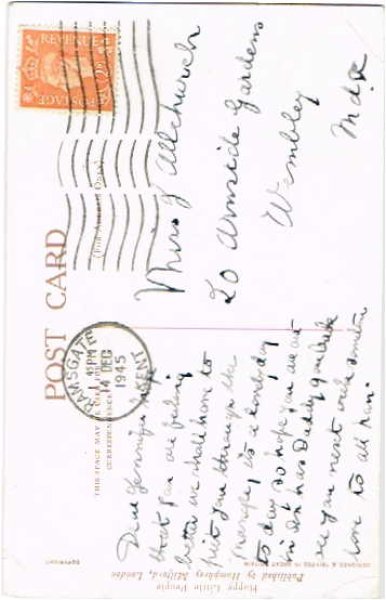 REVENUE
POSTAGE
POST CARD
(FOR ADDRESS ONLY)
RAMSGATE
45 PM
14 DEC
1945
KENT
THIS SPACE MAY BE USED FOR
CORRESPONDENCE
Miss J Allchurch
20 Armside Gardens
Wembley
Mdx
Dear Jennifer I hope
that you are feeling
better we shall have to
put you through the
mangle, its a lovely day
to day so hope you are out
in it has Daddy gone
see you next week
love to all Nan.
COPYRIGHT
DESIGNED & PRINTED IN GREAT BRITAIN
Published by Humphrey Milford, London
Happy Little People